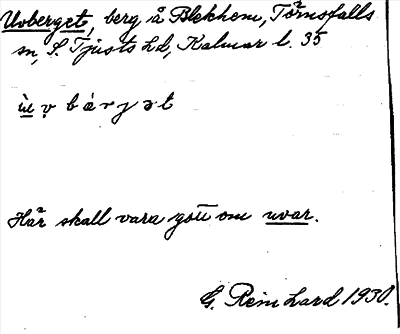 Uvberget, berg å Blekhem, Törnsfalls
sn, S. Tjusts hd, Kalmar l. 35
ùvbärjət
Här skall vara gott om uvar.
G. Reinhard 1930.